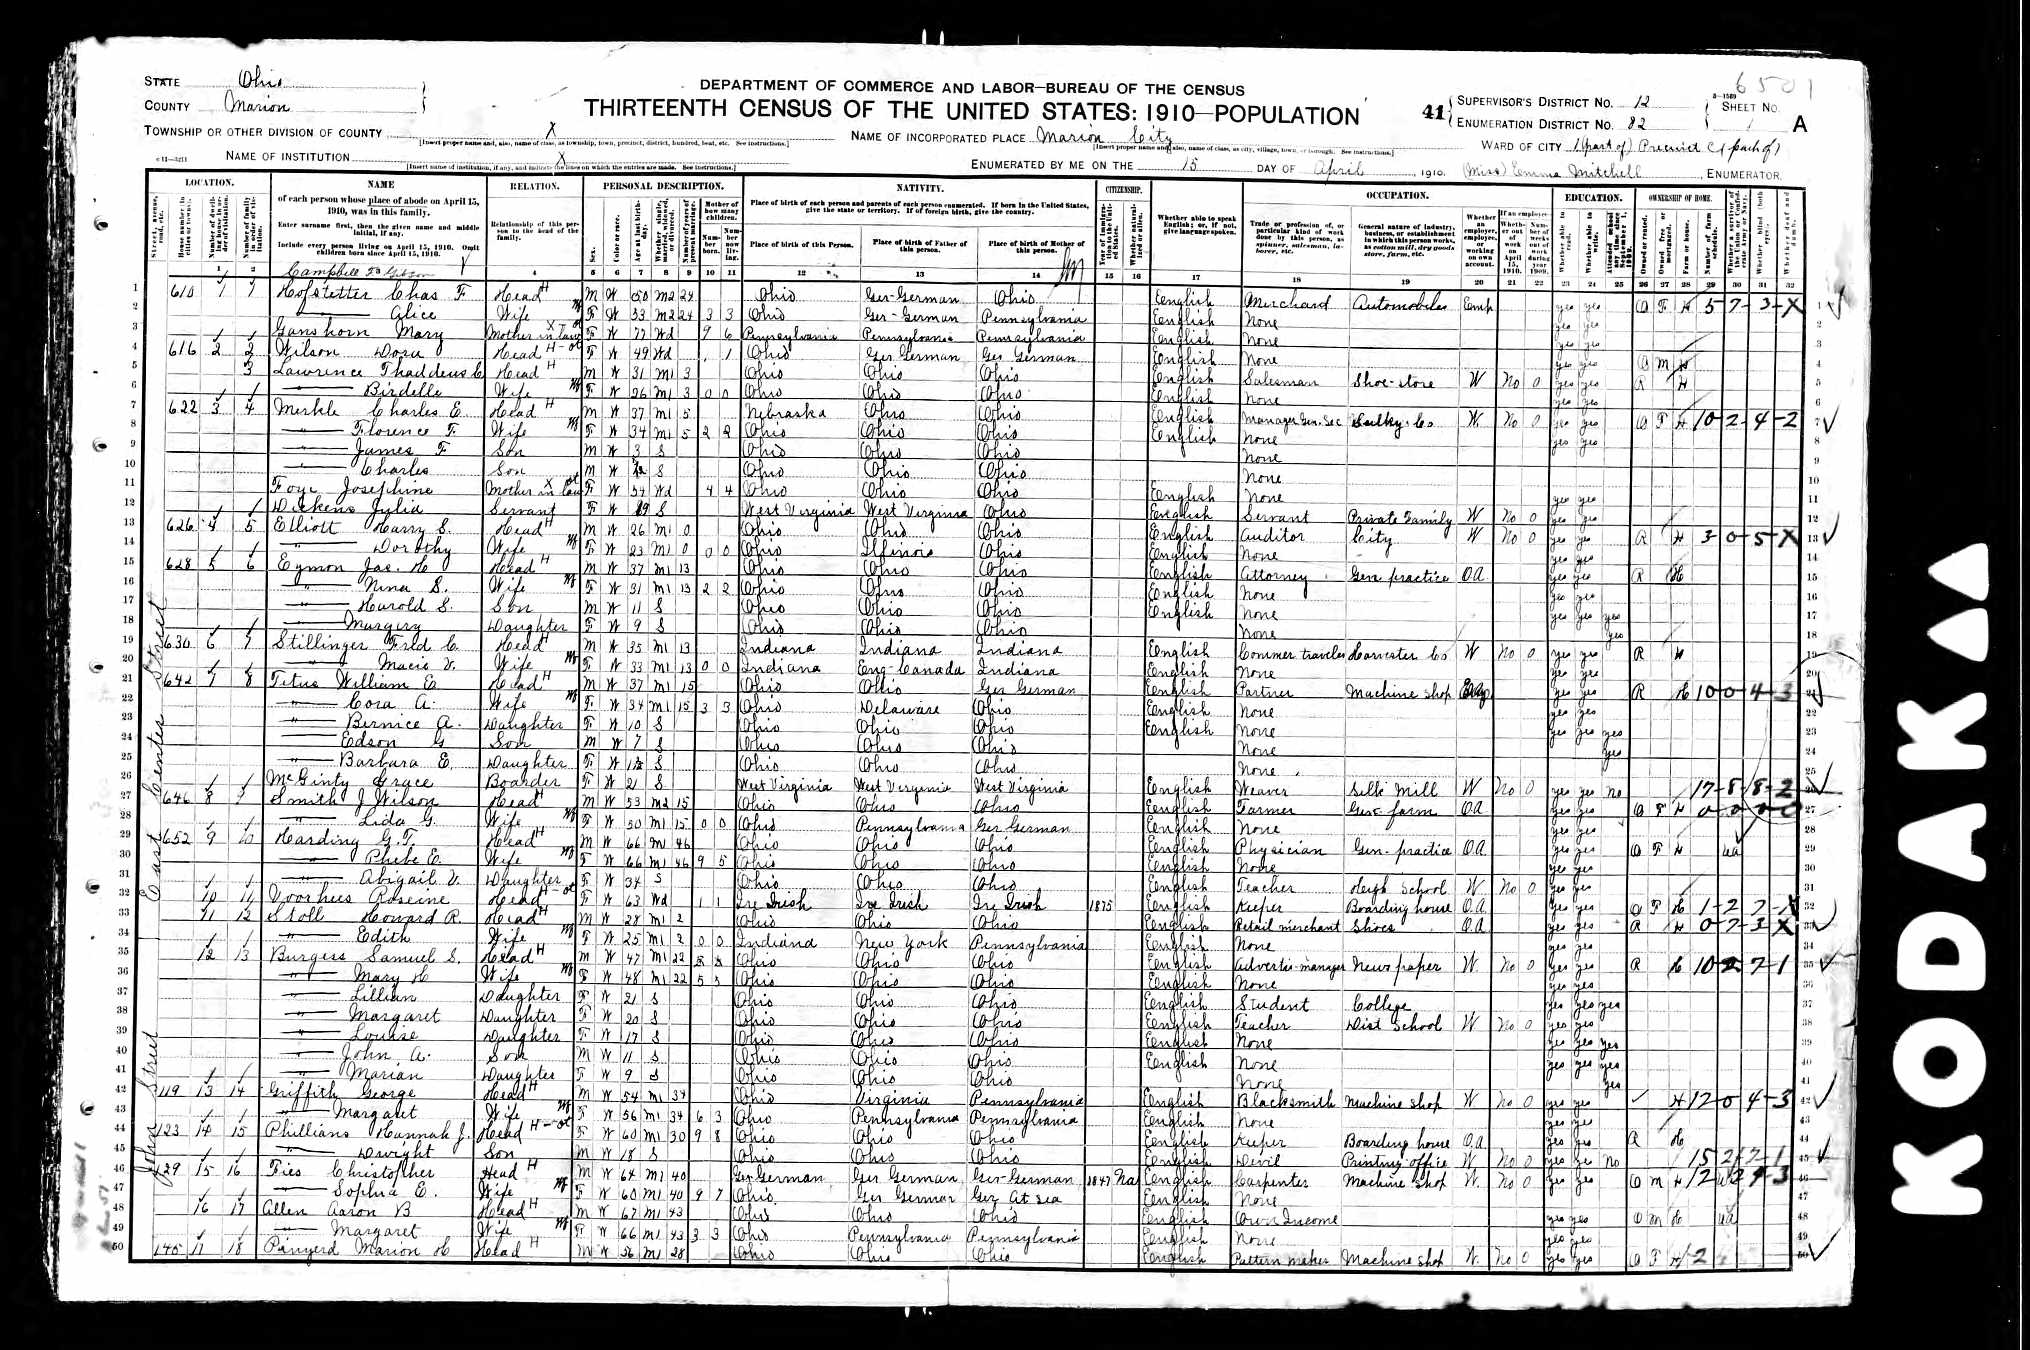 6501
STATE Ohio
COUNTY Marion
TOWNSHIP OR OTHER DIVISION OF COUNTY X
NAME OF INSTITUTION X
DEPARTMENT OF COMMERCE AND LABOR—BUREAU OF THE CENSUS
THIRTEENTH CENSUS OF THE UNITED STATES: 1910—POPULATION
NAME OF INCORPORATED PLACE Marion City
ENUMERATED BY ME ON THE 15 DAY OF April, 1910. (Miss) Emma Mitchell, ENUMERATOR.
41
SUPERVISOR'S DISTRICT No. 12
ENUMERATION DISTRICT No. 82
SHEET No. 1 A
WARD OF CITY 1 (part of) Precinct C (part of)
LOCATION. NAME RELATION. PERSONAL DESCRIPTION. NATIVITY. CITIZENSHIP. OCCUPATION. EDUCATION. OWNERSHIP OF HOME.
of each person whose place of abode on April 15, 1910, was in this family.
Enter surname first, then the given name and middle initial, if any.
Include every person living on April 15, 1910. Omit children born since April 15, 1910.
Relationship of this person to the head of the family.
Place of birth of each person and parents of each person enumerated. If born in the United States, give the state or territory. If of foreign birth, give the country.
Place of birth of this Person. Place of birth of Father of this person. Place of birth of Mother of this person.
Whether able to speak English; or, if not, give language spoken.
East Center Street
1 610 1 1 Hofstetter Chas F Head M W 50 M2 24 Ohio Ger-German Ohio English Merchant Automobiles Emp yes yes O F H
2 Alice Wife F W 53 M2 24 3 3 Ohio Ger-German Pennsylvania English None yes yes
3 Ganshorn Mary Mother in law F W 77 Wd 9 6 Pennsylvania Pennsylvania Pennsylvania English None yes yes
4 616 2 2 Wilson Dora Head F W 49 Wd 1 Ohio Ger German Ger German English None yes yes O M H
5 3 Lawrence Thaddeus C Head M W 31 M1 3 Ohio Ohio Ohio English Salesman Shoe-store W No 0 yes yes R H
6 Birdelle Wife F W 26 M1 3 0 0 Ohio Ohio Ohio English None yes yes
7 622 3 4 Merkle Charles E. Head M W 37 M1 5 Nebraska Ohio Ohio English Manager Gen. Sec Sulky Co W No 0 yes yes O F H 10-2-4-2
8 Florence F. Wife F W 34 M1 5 2 2 Ohio Ohio Ohio English None yes yes
9 James F Son M W 3 S Ohio Ohio Ohio None
10 Charles Son M W S Ohio Ohio Ohio None
11 Foye Josephine Mother in law F W 54 Wd 4 4 Ohio Ohio Ohio English None yes yes
12 Dickens Julia Servant F W 19 S West Virginia West Virginia Ohio English Servant Private Family W No 0 yes yes
13 626 4 5 Elliott Harry S. Head M W 26 M1 0 Ohio Ohio Ohio English Auditor City W No 0 yes yes R H 3-0-5-X
14 Dorothy Wife F W 23 M1 0 0 0 Ohio Illinois Ohio English None yes yes
15 628 5 6 Eymon Jas. H Head M W 37 M1 13 Ohio Ohio Ohio English Attorney Gen practice OA yes yes R H
16 Nina S. Wife F W 31 M1 13 2 2 Ohio Ohio Ohio English None yes yes
17 Harold S. Son M W 11 S Ohio Ohio Ohio English None yes yes yes
18 Margery Daughter F W 9 S Ohio Ohio Ohio None yes
19 630 6 7 Stillinger Fred C. Head M W 35 M1 13 Indiana Indiana Indiana English Commer traveler Harvester Co W No 0 yes yes R H
20 Macie V. Wife F W 33 M1 13 0 0 Indiana Eng-Canada Indiana English None yes yes
21 642 7 8 Titus William E Head M W 37 M1 15 Ohio Ohio Ger German English Partner Machine shop Emp yes yes R H 10-0-4-3
22 Cora A. Wife F W 34 M1 15 3 3 Ohio Delaware Ohio English None yes yes
23 Bernice A. Daughter F W 10 S Ohio Ohio Ohio English None yes yes yes
24 Edson G Son M W 7 S Ohio Ohio Ohio None yes
25 Barbara E. Daughter F W S Ohio Ohio Ohio None
26 McGinty Grace Boarder F W 21 S West Virginia West Virginia West Virginia English Weaver Silk Mill W No 0 yes yes no 17-8-8-2
27 646 8 9 Smith J Wilson Head M W 53 M2 15 Ohio Ohio Ohio English Farmer Gen farm OA yes yes O F H 0-0-0-0
28 Lida G. Wife F W 50 M1 15 0 0 Ohio Pennsylvania Ger German English None yes yes
29 652 9 10 Harding G. T. Head M W 66 M1 46 Ohio Ohio Ohio English Physician Gen. practice OA yes yes O F H UA
30 Phebe E. Wife F W 66 M1 46 9 5 Ohio Ohio Ohio English None yes yes
31 Abigail V. Daughter F W 34 S Ohio Ohio Ohio English Teacher High School W No 0 yes yes
32 10 11 Voorhies Roseine Head F W 63 Wd 1 1 Ire Irish Ire Irish Ire Irish 1875 English Keeper Boarding house OA yes yes O F H 1-2-7-X
33 11 12 Stoll Howard R. Head M W 28 M1 2 Ohio Ohio Ohio English Retail merchant Shoes OA yes yes R H 0-7-3-X
34 Edith Wife F W 25 M1 2 0 0 Indiana New York Pennsylvania English None yes yes
35 12 13 Burgess Samuel S. Head M W 47 M1 22 Ohio Ohio Ohio English Advertis-manager Newspaper W No 0 yes yes R H 10-2-7-1
36 Mary H Wife F W 48 M1 22 5 5 Ohio Ohio Ohio English None yes yes
37 Lillian Daughter F W 21 S Ohio Ohio Ohio English Student College yes yes yes
38 Margaret Daughter F W 20 S Ohio Ohio Ohio English Teacher Dist School W No 0 yes yes
39 Louise Daughter F W 17 S Ohio Ohio Ohio English None yes yes yes
40 John A. Son M W 11 S Ohio Ohio Ohio English None yes yes yes
41 Marian Daughter F W 9 S Ohio Ohio Ohio None yes
John Street
42 119 13 14 Griffith George Head M W 54 M1 34 Ohio Virginia Pennsylvania English Blacksmith Machine shop W No 0 yes yes H 12-0-4-3
43 Margaret Wife F W 56 M1 34 6 3 Ohio Pennsylvania Pennsylvania English None yes yes
44 123 14 15 Phillians Hannah J. Head F W 60 M1 30 9 8 Ohio Ohio Ohio English Keeper Boarding house OA yes yes R H
45 Dwight Son M W 18 S Ohio Ohio Ohio English Devil Printing office W No 0 yes yes no 15-2-7-1
46 129 15 16 Fies Christopher Head M W 64 M1 40 Ger German Ger German Ger-German 1847 Na English Carpenter Machine shop W No 0 yes yes O M H
47 Sophia E. Wife F W 60 M1 40 9 7 Ohio Ger German Ger At sea English None yes yes
48 16 17 Allen Aaron B Head M W 67 M1 43 Ohio Ohio Ohio English Own Income yes yes O M H UA
49 Margaret Wife F W 66 M1 43 3 3 Ohio Pennsylvania Pennsylvania English None yes yes
50 145 17 18 Head M W 56 M1 28 Ohio Ohio Ohio English Pattern maker Machine shop W No 0 yes yes O F H
KODAK